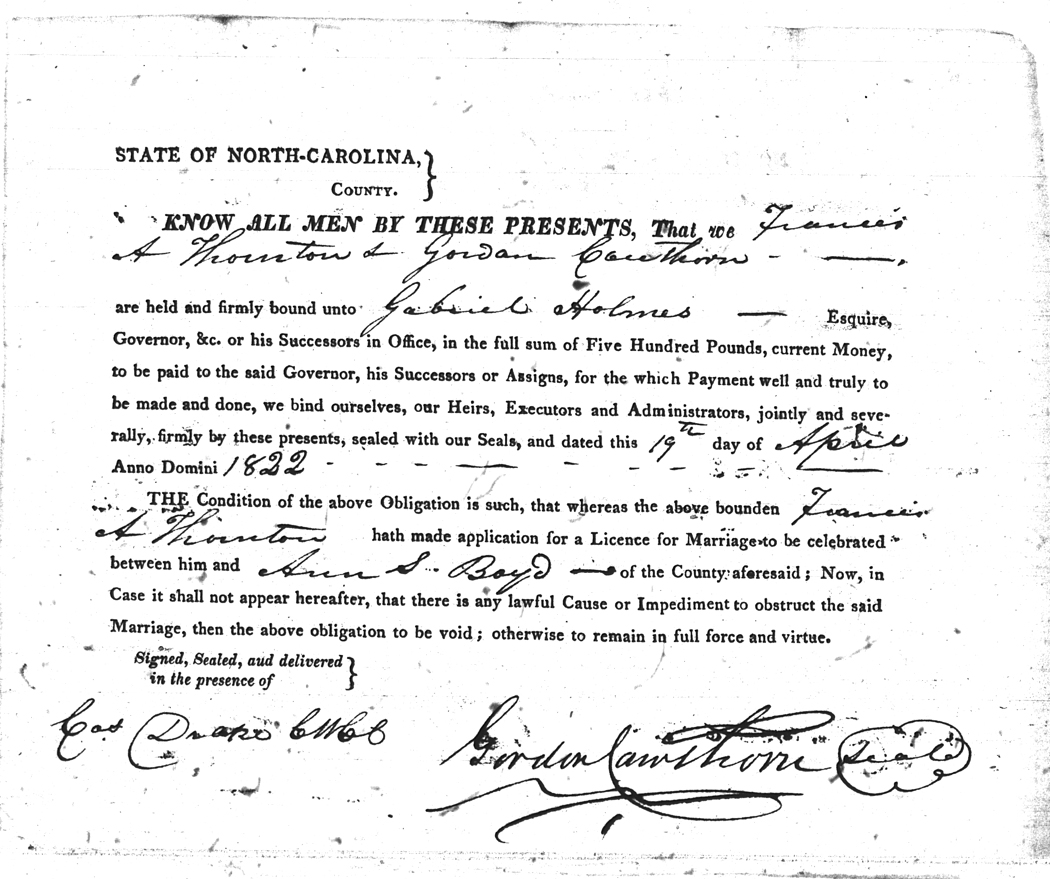 STATE OF NORTH-CAROLINA, }
COUNTY.
KNOW ALL MEN BY THESE PRESENTS, That we Francis
A Thornton & Gordan Cawthorn - —.
are held and firmly bound unto Gabriel Holmes — Esquire,
Governor, &c. or his Successors in Office, in the full sum of Five Hundred Pounds, current Money,
to be paid to the said Governor, his Successors or Assigns, for the which Payment well and truly to
be made and done, we bind ourselves, our Heirs, Executors and Administrators, jointly and seve-
rally, firmly by these presents, sealed with our Seals, and dated this 19th day of April
Anno Domini 1822 - - - — - - - - —
THE Condition of the above Obligation is such, that whereas the above bounden Francis
A Thornton hath made application for a Licence for Marriage to be celebrated
between him and Ann S. Boyd — of the County aforesaid; Now, in
Case it shall not appear hereafter, that there is any lawful Cause or Impediment to obstruct the said
Marriage, then the above obligation to be void; otherwise to remain in full force and virtue.
Signed, Sealed, aud delivered }
in the presence of
Cas Drake CWCC
Gordon Cawthorn Seal